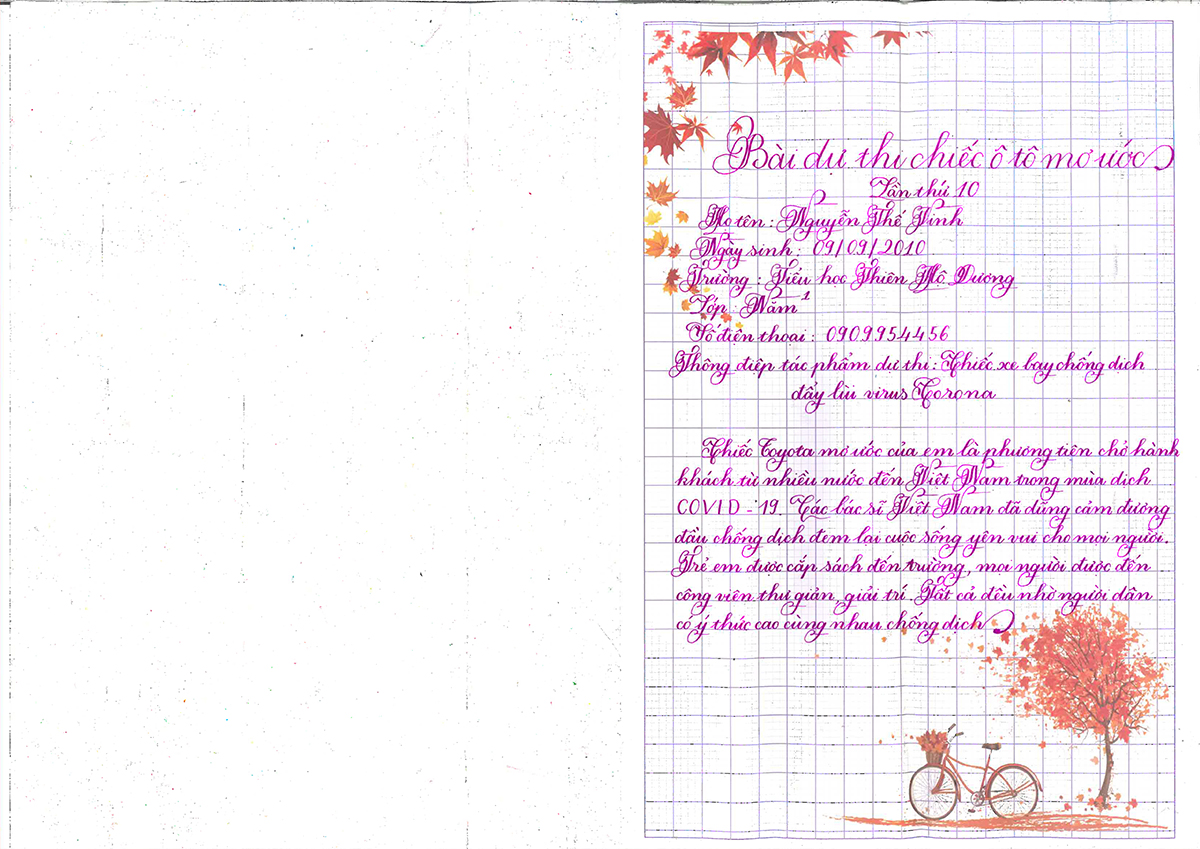 Bài dự thi chiếc ô tô mơ ước
Lần thứ 10
Họ tên : Nguyễn Thế Vinh
Ngày sinh : 09/09/2010
Trường : Tiểu học Thiên Hộ Dương
Lớp : Năm¹
Số điện thoại : 0909954456
Thông điệp tác phẩm dự thi : Chiếc xe bay chống dịch
đẩy lùi virus Corona
Chiếc Toyota mơ ước của em là phương tiên chở hành
khách từ nhiều nước đến Việt Nam trong mùa dịch
COVID - 19. Các bác sĩ Việt Nam đã dũng cảm đương
đầu chống dịch đem lại cuộc sống yên vui cho mọi người.
Trẻ em được cắp sách đến trường, mọi người được đến
công viên thư giản, giải trí. Tất cả đều nhờ người dân
có ý thức cao cùng nhau chống dịch